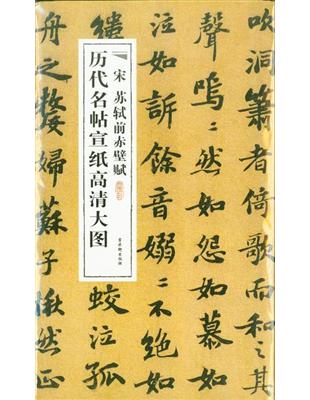 吹洞簫者倚歌而和之其
聲嗚〻然如怨如慕如
泣如訴餘音嫋〻不絕如
縷
蛟泣孤
舟之嫠婦蘇子愀然正
宋 苏轼前赤壁赋
历代名帖宣纸高清大图